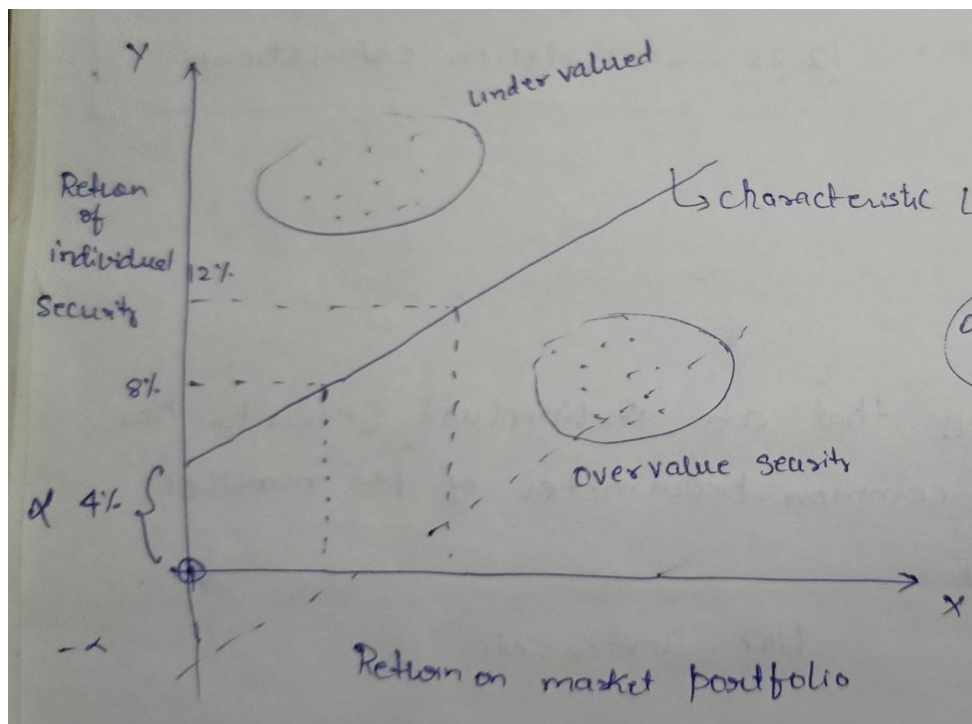 Y
undervalued
Retion
of
individual
Security
characteristic L
12%
8%
α 4%
overvalue searity
X
-α
Return on market portfolio